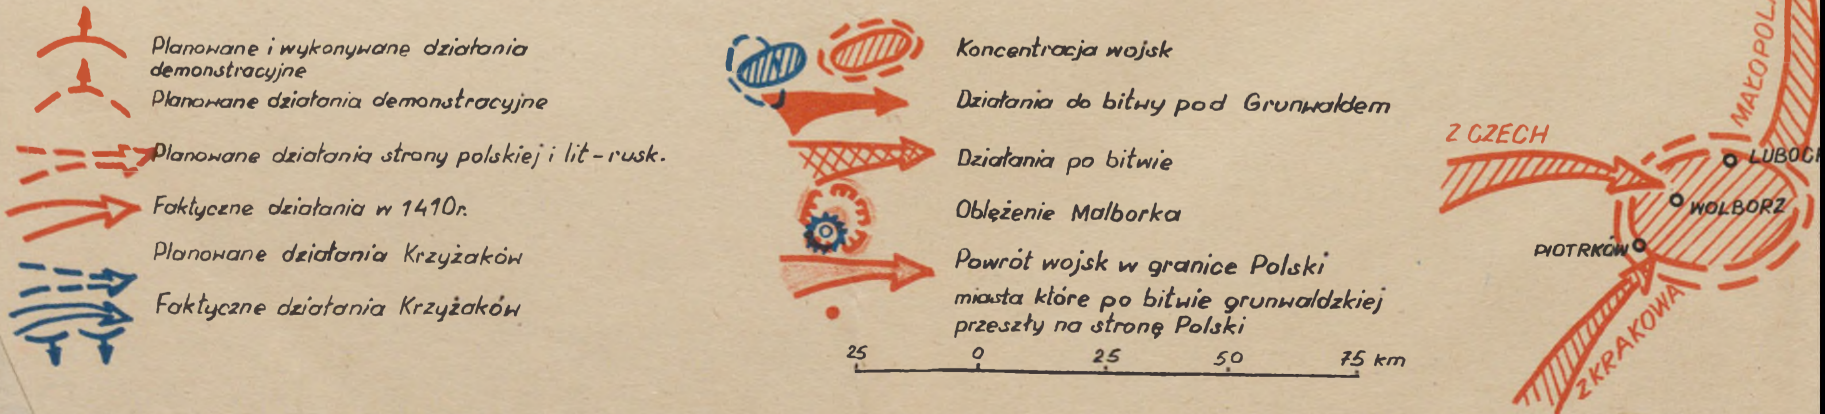 Planowane i wykonywane działania
demonstracyjne
Planowane działania demonstracyjne
Planowane działania strony polskiej i lit-rusk.
Faktyczne działania w 1410r.
Planowane działania Krzyżaków
Faktyczne działania Krzyżaków
Koncentracja wojsk
Działania do bitwy pod Grunwaldem
Działania po bitwie
Oblężenie Malborka
Powrót wojsk w granice Polski
miasta które po bitwie grunwaldzkiej
przeszły na stronę Polski
25 0 25 50 75 km
Z CZECH
MAŁOPOL
LUBOC
WOLBORZ
PIOTRKÓW
Z KRAKOWA